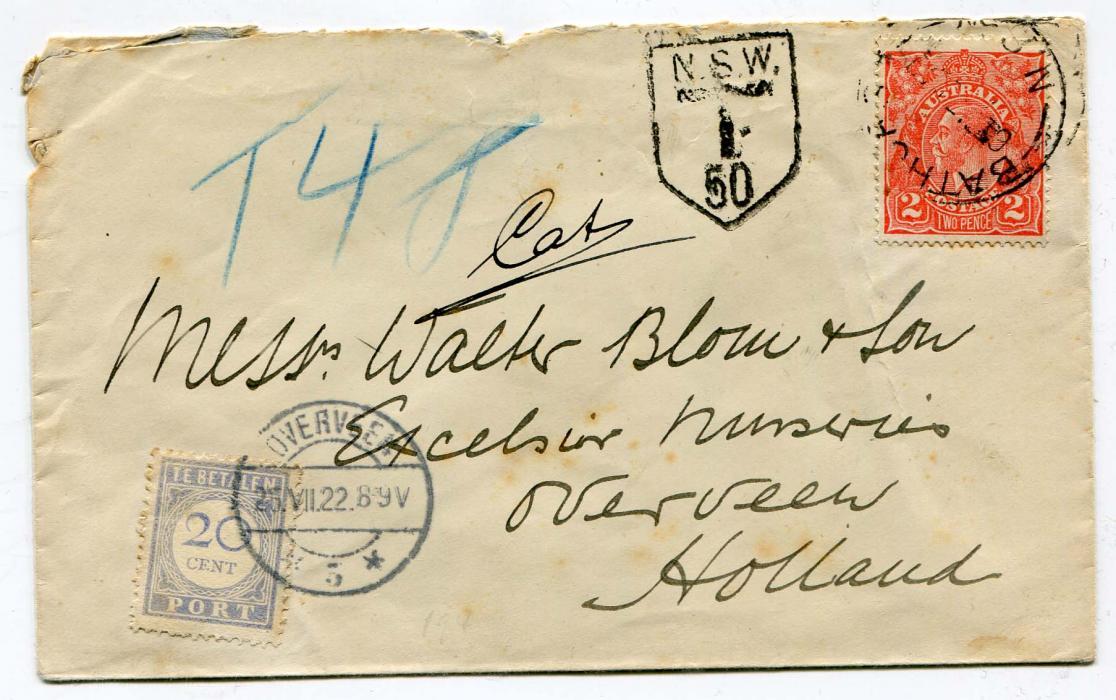 N.S.W.
T
50
BATHURST
N.S.W
AUSTRALIA
POSTAGE
2 TWO PENCE 2
T 48
Cat
Messrs. Walter Blom & Son
Excelsior Nurseries
Overveen
Holland
OVERVEEN
25.VII.22.8-9V
* 5 *
TE BETALEN
20
CENT
PORT